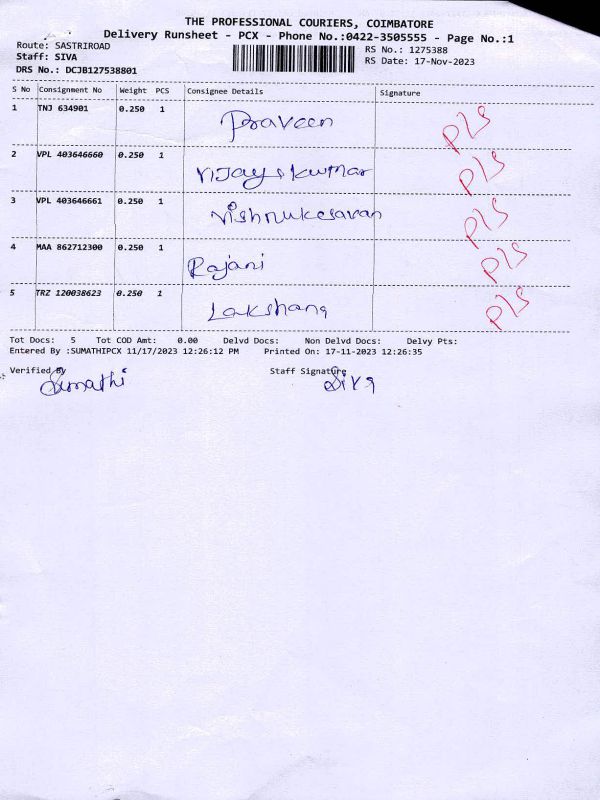 THE PROFESSIONAL COURIERS, COIMBATORE
Delivery Runsheet - PCX - Phone No.:0422-3505555 - Page No.:1
Route: SASTRIROAD RS No.: 1275388
Staff: SIVA RS Date: 17-Nov-2023
DRS No.: DCJB127538801
S No Consignment No Weight PCS Consignee Details Signature
1 TNJ 634901 0.250 1 Praveen P/S
2 VPL 403646660 0.250 1 Vijayakumar P/S
3 VPL 403646661 0.250 1 Vishnukesavan P/S
4 MAA 862712300 0.250 1 Rajani P/S
5 TRZ 120038623 0.250 1 Lakshana P/S
Tot Docs: 5 Tot COD Amt: 0.00 Delvd Docs: Non Delvd Docs: Delvy Pts:
Entered By :SUMATHIPCX 11/17/2023 12:26:12 PM Printed On: 17-11-2023 12:26:35
Verified By Staff Signature
Sumathi Siva